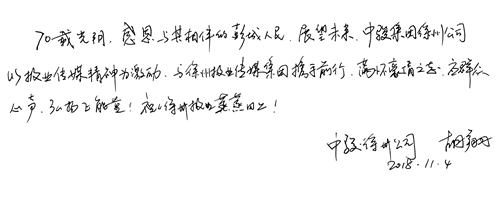 70载光阴，感恩与其相伴的彭城人民，展望未来，中骏集团徐州公司
以报业传媒精神为激励，与徐州报业传媒集团携手前行，满怀豪情之志， 群众
心声，弘扬正能量！祝徐州报业蒸蒸日上！
中骏徐州公司 胡
2018.11.4